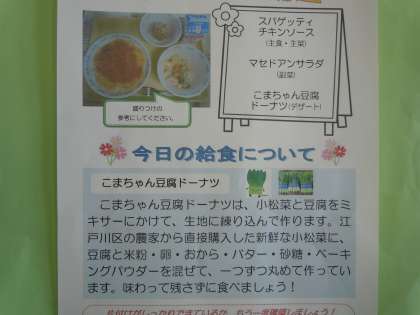 スパゲッティ
チキンソース
(主食・主菜)
マセドアンサラダ
(副菜)
こまちゃん豆腐
ドーナツ(デザート)
盛りつけの
参考にしてください。
今日の給食について
こまちゃん豆腐ドーナツ
こまちゃん豆腐ドーナツは、小松菜と豆腐をミ
キサーにかけて、生地に練り込んで作ります。江
戸川区の農家から直接購入した新鮮な小松菜に、
豆腐と米粉・卵・おから・バター・砂糖・ベーキ
ングパウダーを混ぜて、一つずつ丸めて作ってい
ます。味わって残さずに食べましょう！
片付けがしっかりできているか、もう一度確認しましょう！